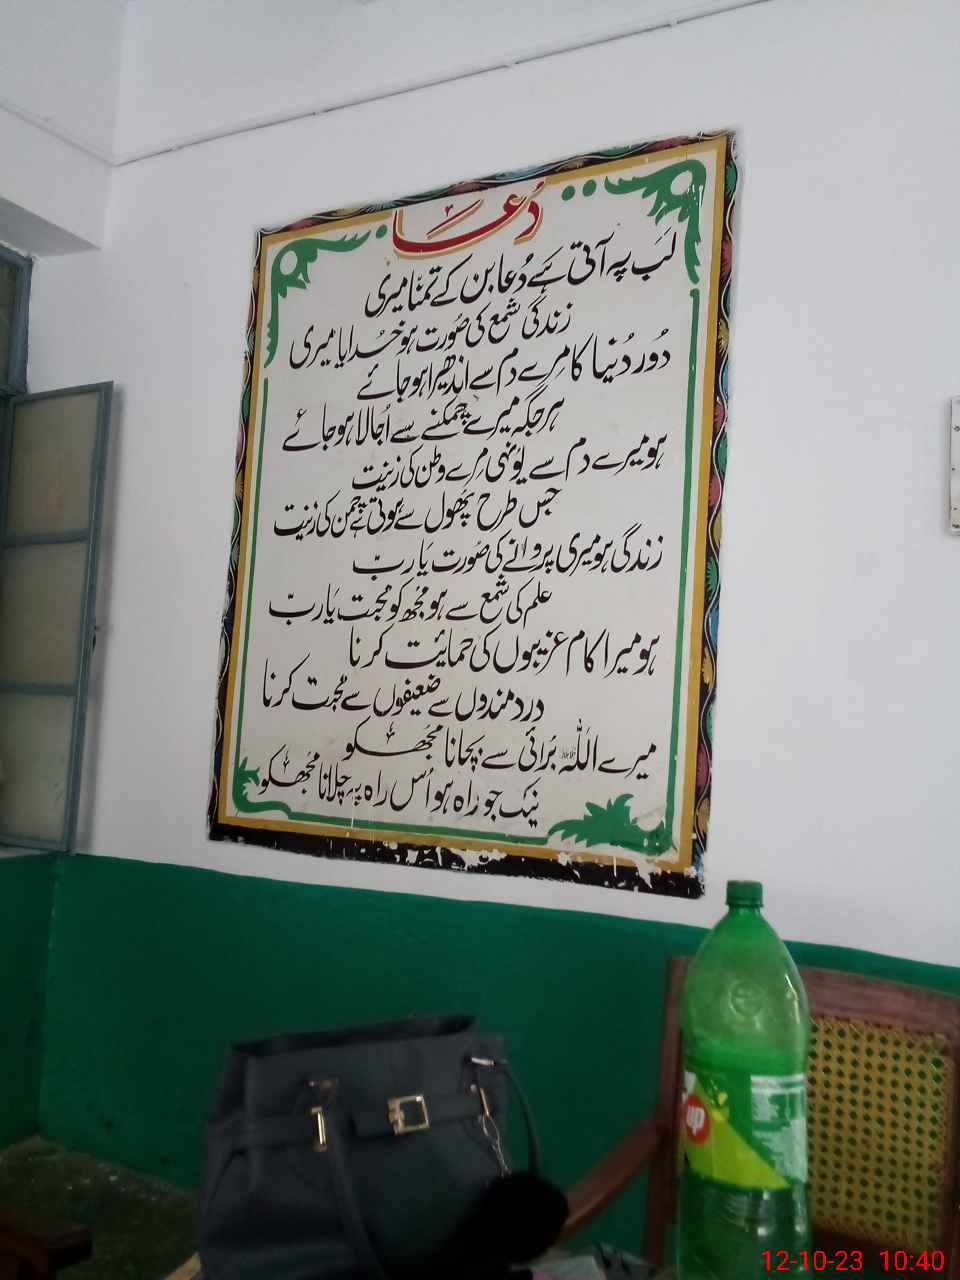 دُعا
لَب پہ آتی ہَے دُعا بن کے تمنّا میری
زندگی شمع کی صُورت ہو خُدایا میری
دُور دُنیا کا مِرے دم سے اندھیرا ہو جائے
ہر جگہ میرے چمکنے سے اُجالا ہو جائے
ہو میرے دم سے یُونہی مِرے وطن کی زینت
جس طرح پھُول سے ہوتی ہے چمن کی زینت
زندگی ہو میری پروانے کی صُورت یَا ربّ
علم کی شمع سے ہو مُجھ کو محبت یَا ربّ
ہو میرا کام غریبوں کی حمائیت کرنا
درد مندوں سے ضعیفوں سے محبت کرنا
میرے اللہ بُرائی سے بچانا مُجھکو
نیک جو راہ ہو اُس راہ پہ چلانا مُجھکو
7up
12-10-23 10:40